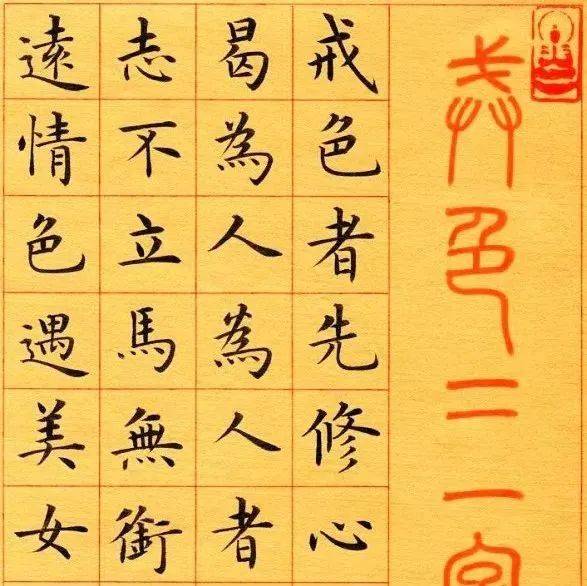 戒色二一
戒色者先修心
曷為人為人者
志不立馬無銜
遠情色遇美女